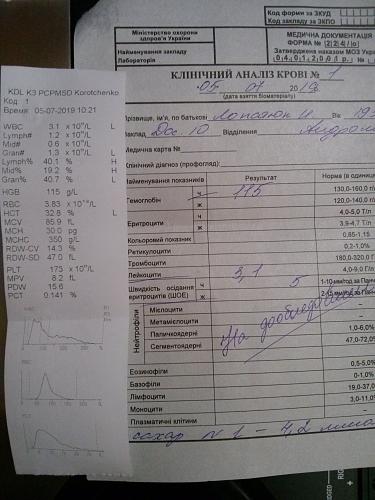 KDL K3 PCPM5D Korotchenko
Код: 1
Время: 05-07-2019 10:21
WBC 3.1 x 10⁹/L L
Lymph# 1.2 x 10⁹/L
Mid# 0.6 x 10⁹/L
Gran# 1.3 x 10⁹/L L
Lymph% 40.1 % H
Mid% 19.2 % H
Gran% 40.7 % L
HGB 115 g/L
RBC 3.83 x 10¹²/L
HCT 32.8 % L
MCV 85.9 fL
MCH 30.0 pg
MCHC 350 g/L
RDW-CV 14.3 %
RDW-SD 47.0 fL
PLT 173 x 10⁹/L
MPV 8.2 fL
PDW 15.6
PCT 0.141 %
WBC
RBC
PLT
Код форми за ЗКУД
Код закладу за ЗКПО
Міністерство охорони
здоров'я України
Найменування закладу
Лабораторія
МЕДИЧНА ДОКУМЕНТАЦІЯ
ФОРМА № 224/о
Затверджена наказом МОЗ Україн
04.01.2001 р. №
КЛІНІЧНИЙ АНАЛІЗ КРОВІ № 1
05 07 2019
(дата взяття біоматеріалу)
Прізвище, ім'я, по батькові
Заклад 10 Відділення
Медична карта №
Клінічний діагноз (профогляд):
Найменування показників Результат Норма (в одиниц
Гемоглобін ч 115 130,0-160,0 г/л
ж 120,0-140,0 г/
Еритроцити ч 4,0-5,0 Т/л
ж 3,9-4,7 Т/л
Кольоровий показник 0,85-1,15
Ретикулоцити 0,2-1,0%
Тромбоцити 180,0-320,0 Г
Лейкоцити 3,1 4,0-9,0 Г/л
Швидкість осідання
еритроцитів (ШОЕ) ч 5 1-10 мм/год за Панч
ж 2-15 мм/год за Панч
Нейтрофіли
Мієлоцити
Метамієлоцити
Паличкоядерні 1,0-6,0%
Сегментоядерні 47,0-72,0
На дообследовании
Еозинофіли 0,5-5,0%
Базофіли 0-1,0%
Лімфоцити 19,0-37,0
Моноцити 3,0-11,0
Плазматичні клітини
сахар N 1 - 4,2